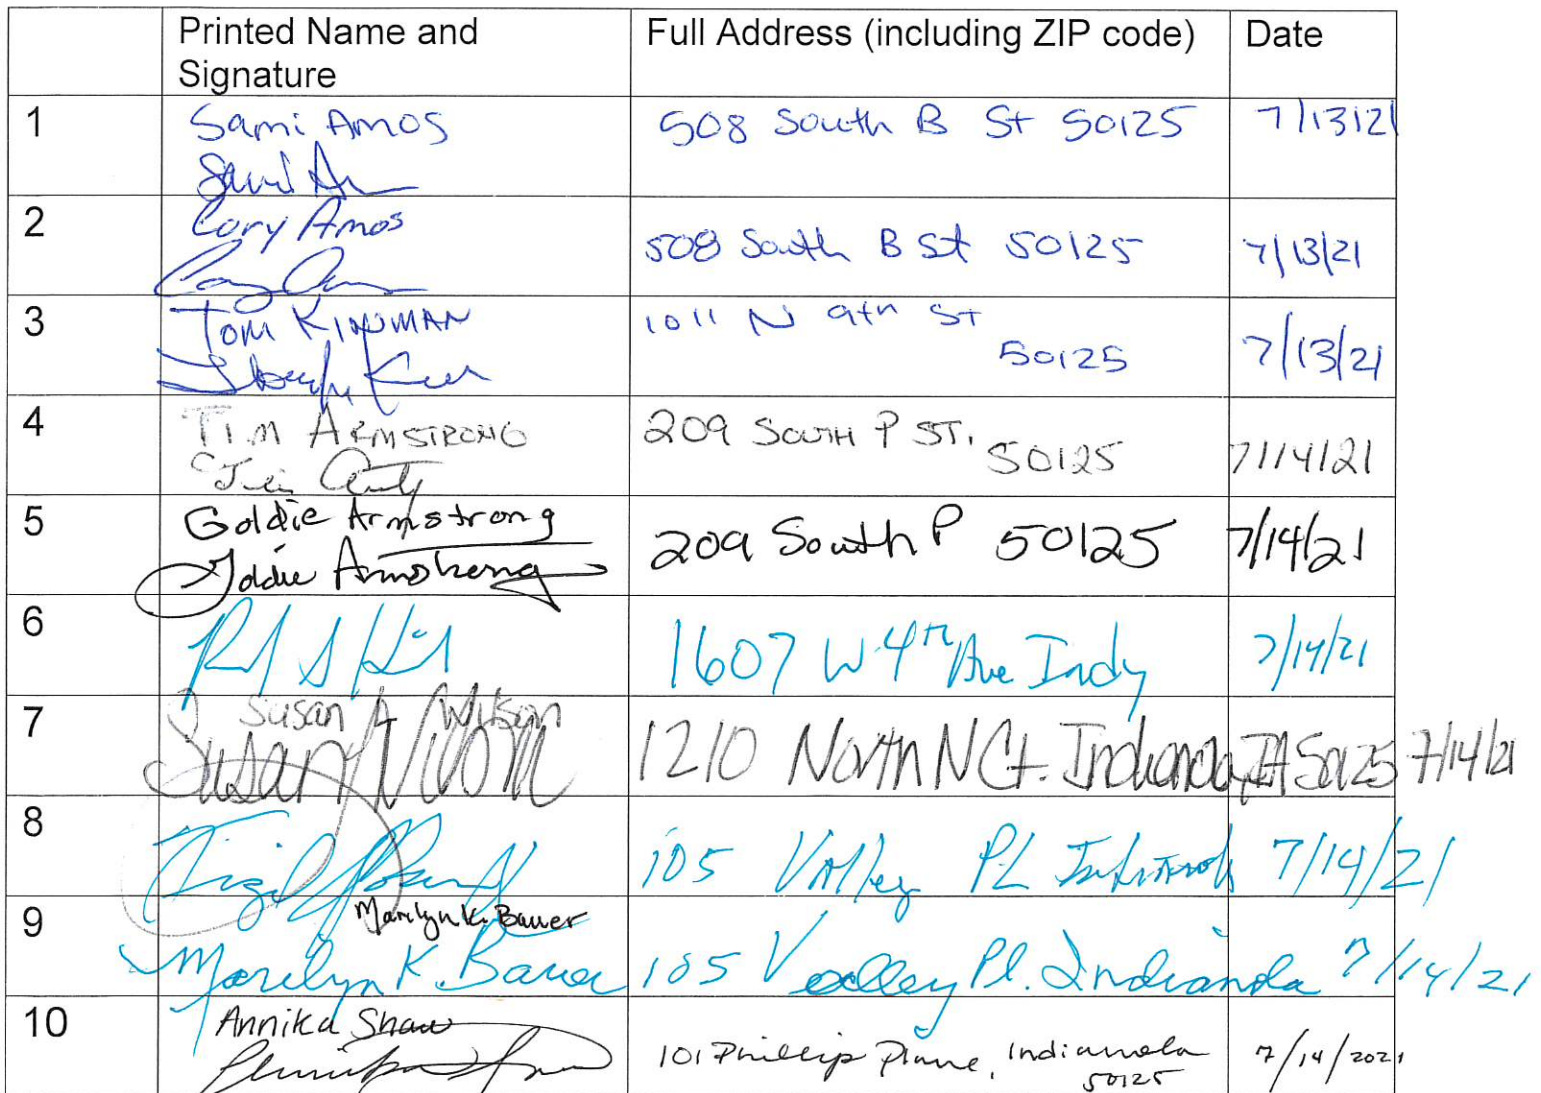 Printed Name and Signature Full Address (including ZIP code) Date
1 Sami Amos 508 South B St 50125 7/13/21
2 Cory Amos
508 South B St 50125 7/13/21
3 Tom Kinman 1011 N 9th St
50125 7/13/21
4 Tim Armstrong 209 South P St.
50125 7/14/21
5 Goldie Armstrong 209 South P 50125 7/14/21
Goldie Armstrong
6 1607 W 4th Ave Indy 7/14/21
7 Susan A Wilson 1210 North N Ct. Indianola, IA 50125 7/14/21
Susan Wilson
8 105 Valley Pl 7/14/21
9 Marilyn K. Bauer
Marilyn K. Bauer 105 Valley Pl. Indianola 7/14/21
10 Annika Shaw
101 Phillip Place, Indianola 7/14/2021
50125